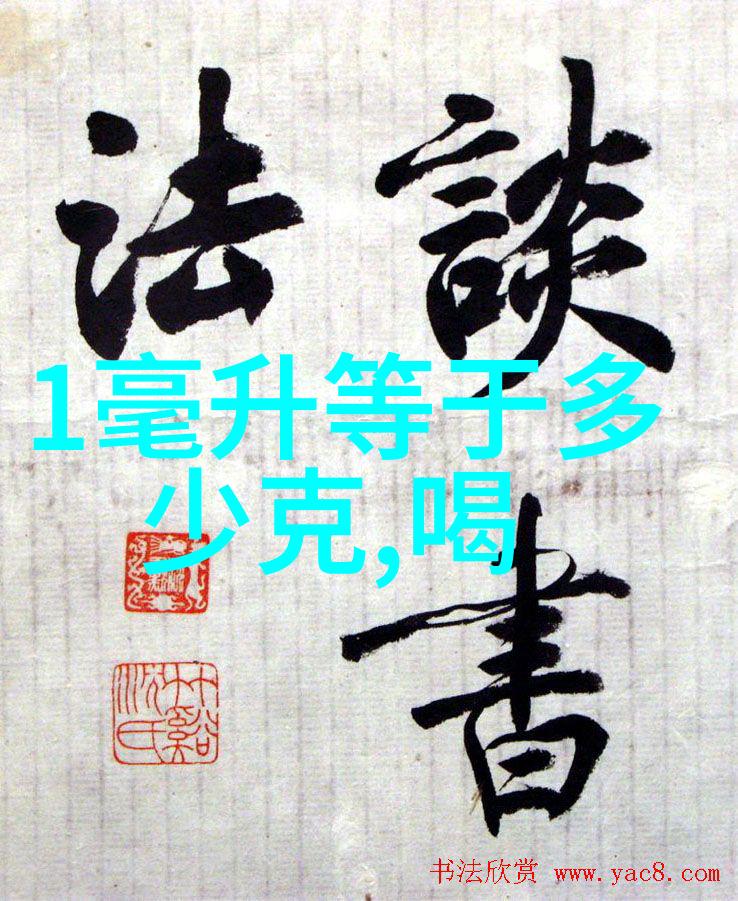 談書
法
1毫升等于多
少克,喝
书法欣赏 www.yac8.com